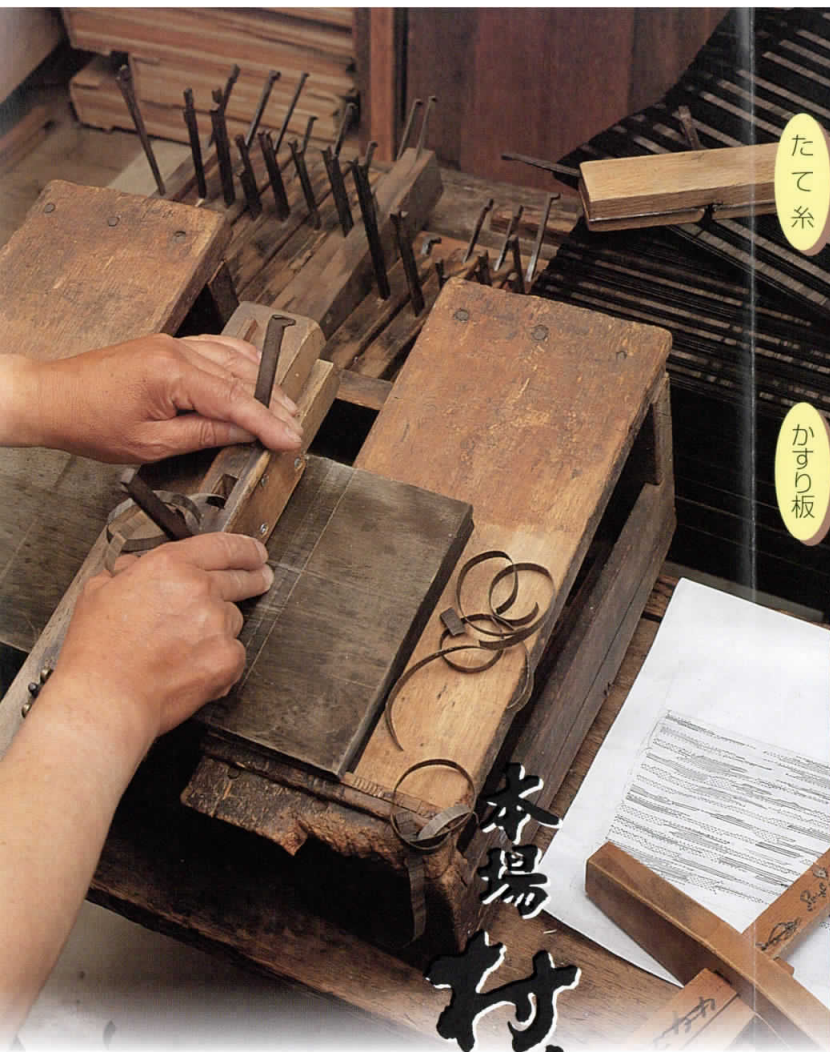 たて糸
かすり板
本場
村